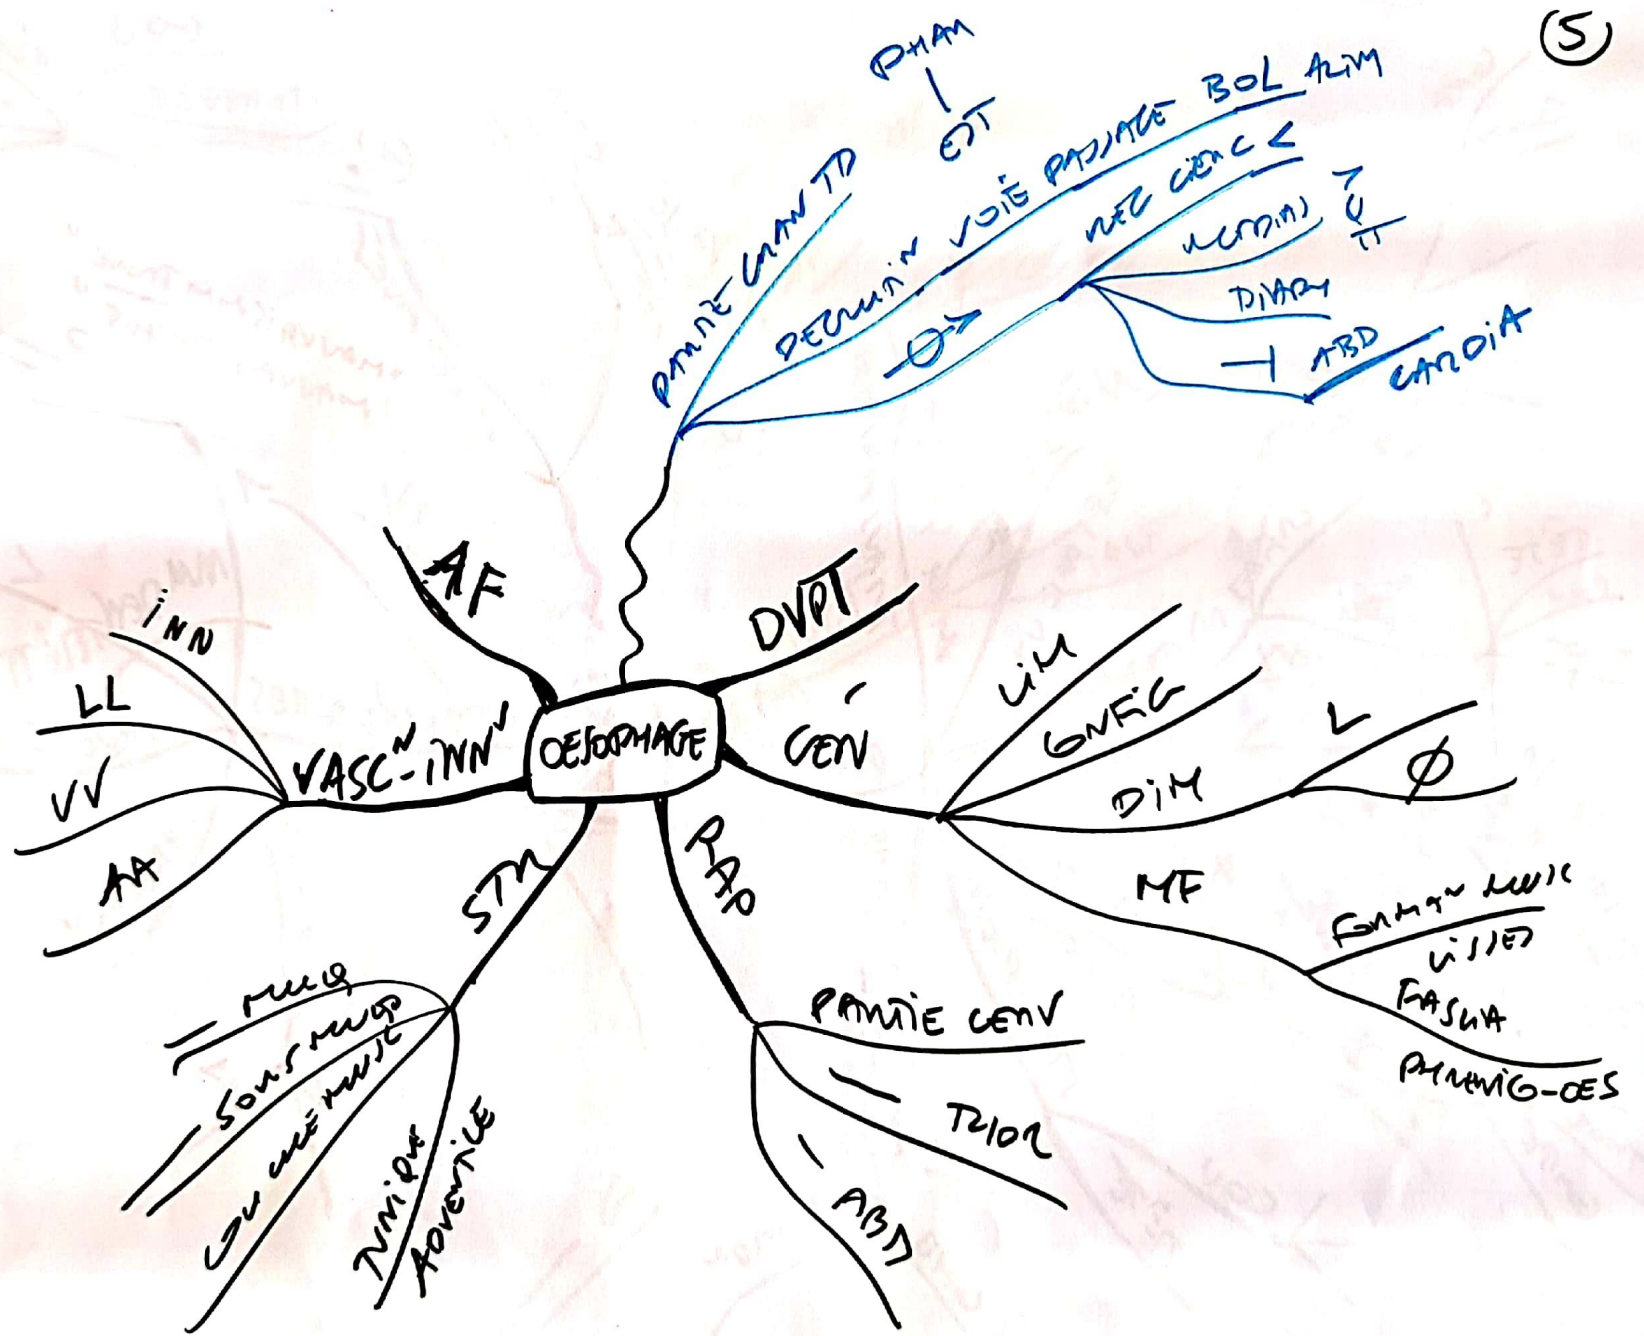 5
PHAR
EST
PARTIE CRAN TD
DEGLUTI^N VOIE PASSAGE BOL ALIM
REG CERV <
MEDIAS >
DIAPH
ABD
CARDIA
AF
DVPT
OESOPHAGE
GEN
LIM
CONFIG
DIM
L
Ø
MF
FORMA^N MUSC
LISSES
FASCIA
PHRENICO-OES
RAP
PARTIE CERV
THOR
ABD
STR
MUQ
SOUS MUQ
COUCHE MUSC
TUNIQUE
ADVENTICE
VASC^N-INN^N
INN
LL
VV
AA